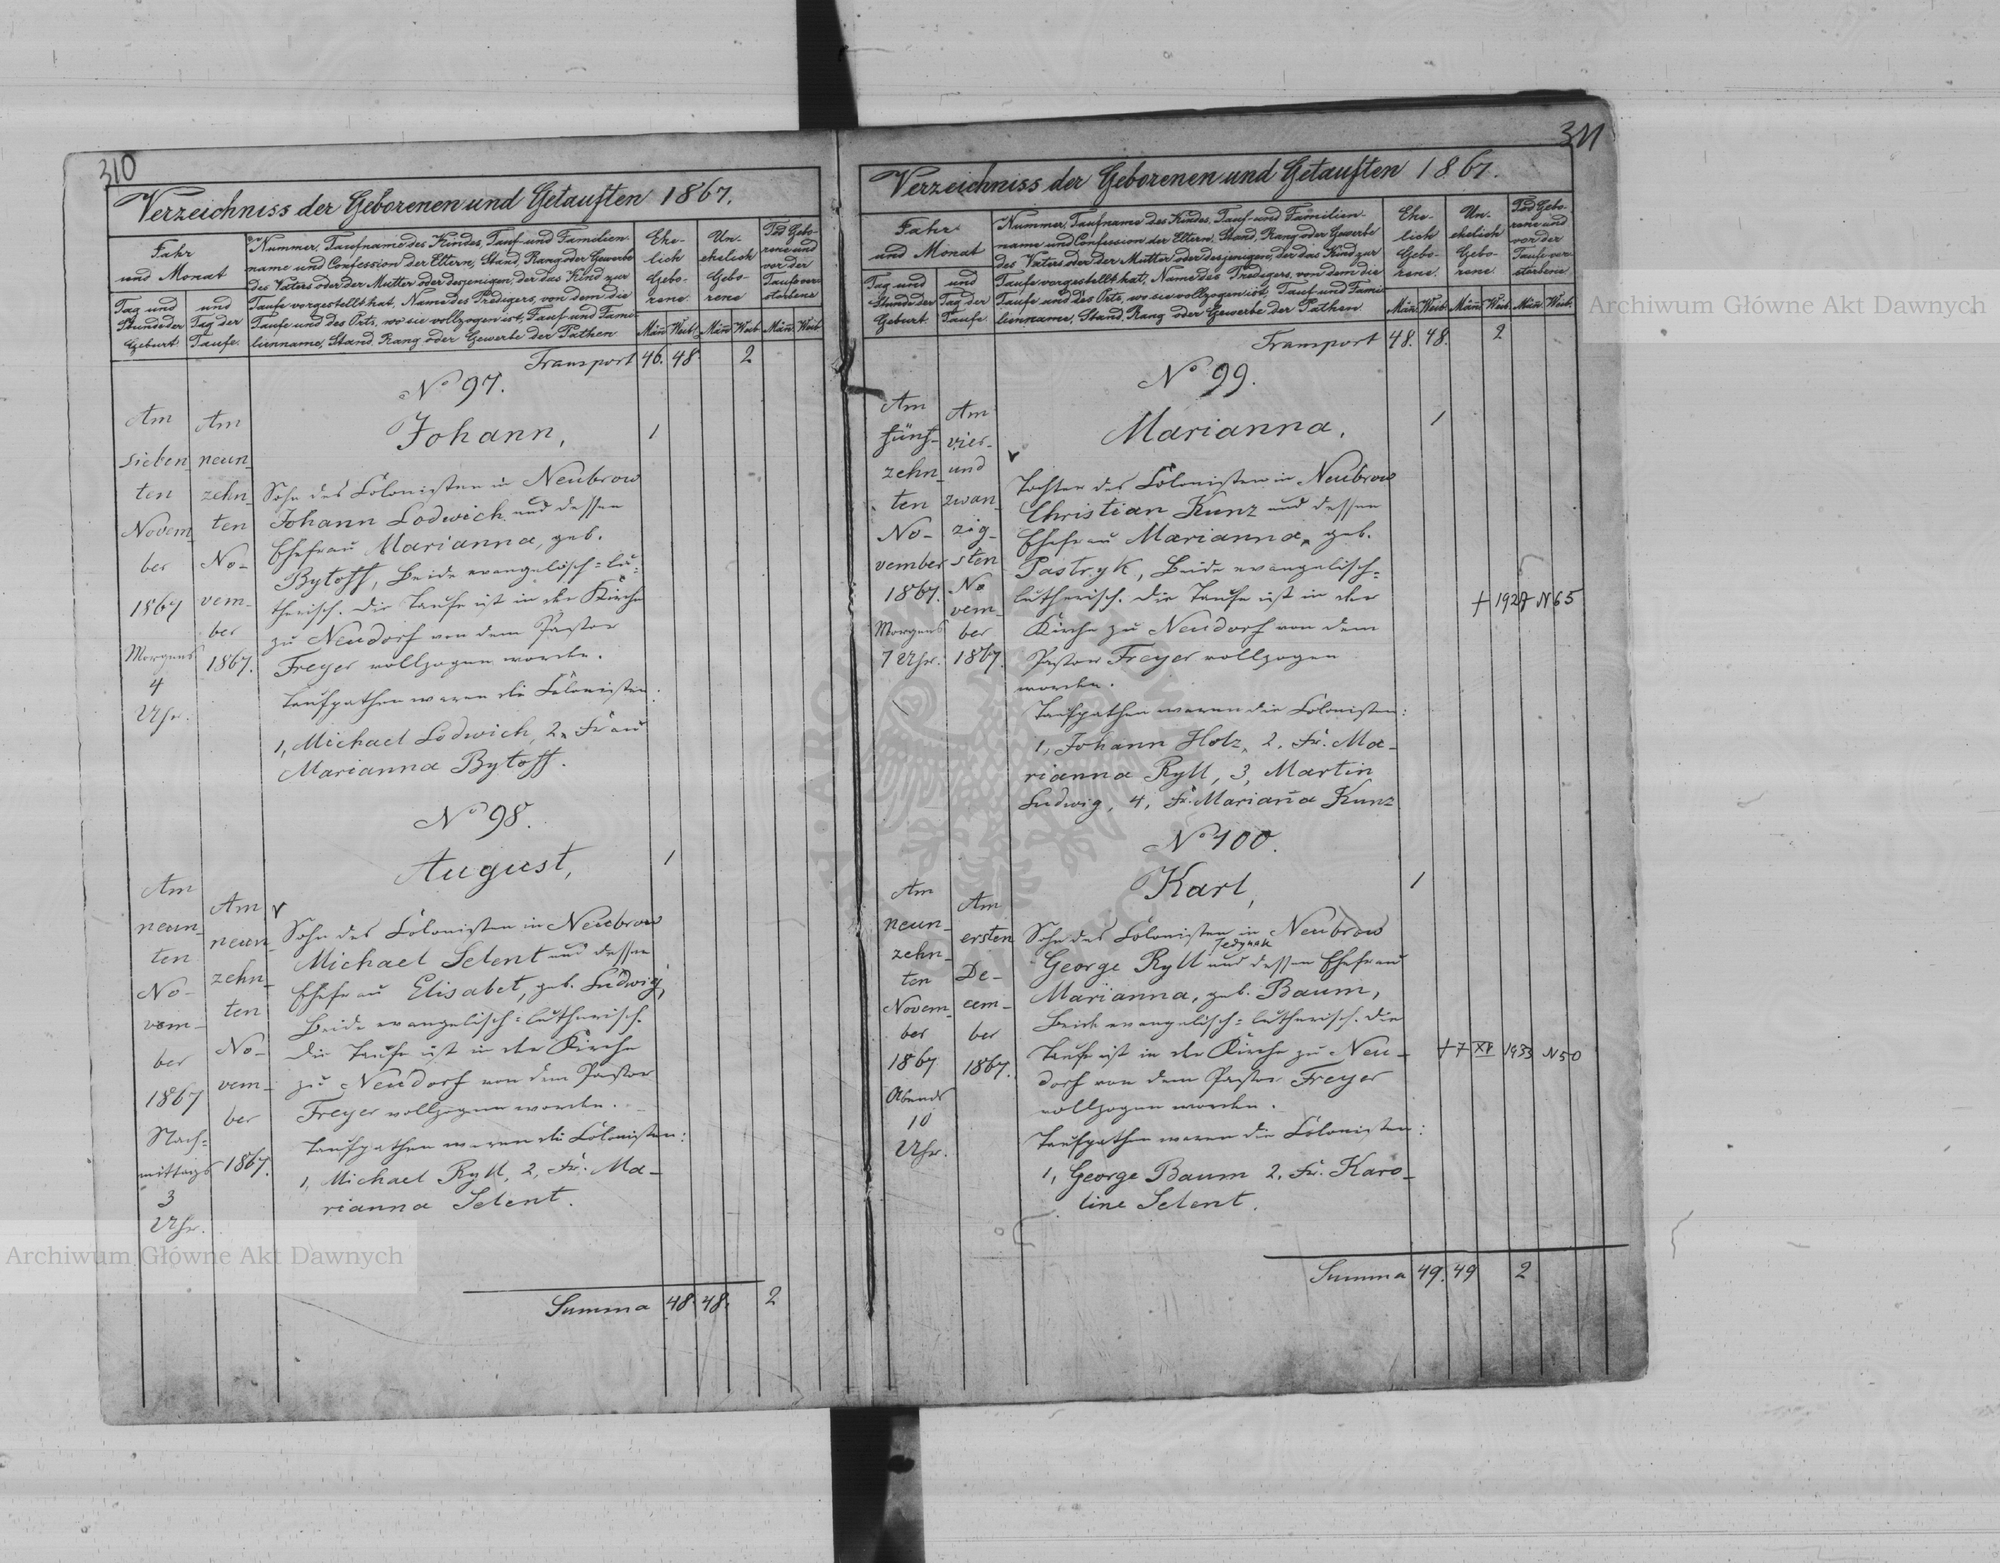 310
Verzeichniss der Geborenen und Getauften 1867.
Jahr
und Monat
Tag und
Stunde der
Geburt
und
Tag der
Taufe.
Nummer, Taufname des Kindes, Tauf- und Familien-
name und Confession der Eltern, Stand, Rang oder Gewerbe
des Vaters oder der Mutter oder desjenigen, der das Kind zur
Taufe vorgestellt hat, Name des Predigers, von dem die
Taufe und des Orts, wo sie vollzogen ist, Tauf- und Fami-
lienname, Stand, Rang oder Gewerbe der Pathen
Ehe-
lich
Gebo-
rene.
Un-
ehelich
Gebo-
rene
Tod Gebo-
rene und
vor der
Taufe ver-
storbene
Män. Weib. Män. Weib. Män. Weib.
Transport 46. 48 2
No 97.
Am
sieben
ten
Novem
ber
1867
Morgens
4
Uhr.
Am
neun
zehn
ten
No-
vem-
ber
1867.
Johann, 1
Sohn des Colonisten in Neubrow
Johann Lodwich und dessen
Ehefrau Marianna, geb.
Bytoff, Beide evangelisch=lu=
therisch. Die Taufe ist in der Kirche
zu Neudorf von dem Pastor
Freyer vollzogen worden.
Taufpathen waren die Colonisten:
1, Michael Lodwich, 2, Frau
Marianna Bytoff.
No 98.
Am
neun
ten
No-
vem-
ber
1867
Nach=
mittags
3
Uhr.
Am
neun
zehn
ten
No-
vem-
ber
1867.
August, 1
Sohn des Colonisten in Neubrow
Michael Selent und dessen
Ehefrau Elisabet, geb. Ludwig,
Beide evangelisch=lutherisch.
Die Taufe ist in der Kirche
zu Neudorf von dem Pastor
Freyer vollzogen worden.
Taufpathen waren die Colonisten:
1, Michael Ryll, 2, Fr. Ma-
rianna Selent.
Summa 48. 48. 2
311
Verzeichniss der Geborenen und Getauften 1867.
Jahr
und Monat
Tag und
Stunde der
Geburt
und
Tag der
Taufe.
Nummer, Taufname des Kindes, Tauf- und Familien-
name und Confession der Eltern, Stand, Rang oder Gewerbe
des Vaters oder der Mutter oder desjenigen, der das Kind zur
Taufe vorgestellt hat, Name des Predigers, von dem die
Taufe und des Orts, wo sie vollzogen ist, Tauf- und Fami-
lienname, Stand, Rang oder Gewerbe der Pathen
Ehe-
lich
Gebo-
rene.
Un-
ehelich
Gebo-
rene
Tod Gebo-
rene und
vor der
Taufe ver-
storbene
Män. Weib. Män. Weib. Män. Weib.
Transport 48. 48. 2
No 99.
Am
fünf-
zehn
ten
No-
vember
1867.
Morgens
7 Uhr.
Am
vier-
und
zwan
zig-
sten
No
vem-
ber
1867.
Marianna, 1
Tochter des Colonisten in Neubrow
Christian Kunz und dessen
Ehefrau Marianna, geb.
Pastryk, Beide evangelisch=
lutherisch. Die Taufe ist in der
Kirche zu Neudorf von dem
Pastor Freyer vollzogen
worden.
Taufpathen waren die Colonisten:
1, Johann Holz, 2, Fr. Ma-
rianna Ryll, 3, Martin
Ludwig, 4, Fr. Marianna Kunz
† 1927 N 65
No 100.
Am
neun-
zehn
ten
Novem
ber
1867
Abends
10
Uhr.
Am
ersten
De-
cem-
ber
1867.
Karl, 1
Sohn des Colonisten in Neubrow
Jedynak
George Ryll und dessen Ehefrau
Marianna, geb. Baum,
Beide evangelisch=lutherisch. Die
Taufe ist in der Kirche zu Neu-
dorf von dem Pastor Freyer
vollzogen worden.
Taufpathen waren die Colonisten:
1, George Baum 2, Fr. Karo-
line Selent.
† 7 XI 1933 N 50
Summa 49. 49 2
Archiwum Główne Akt Dawnych
Archiwum Główne Akt Dawnych